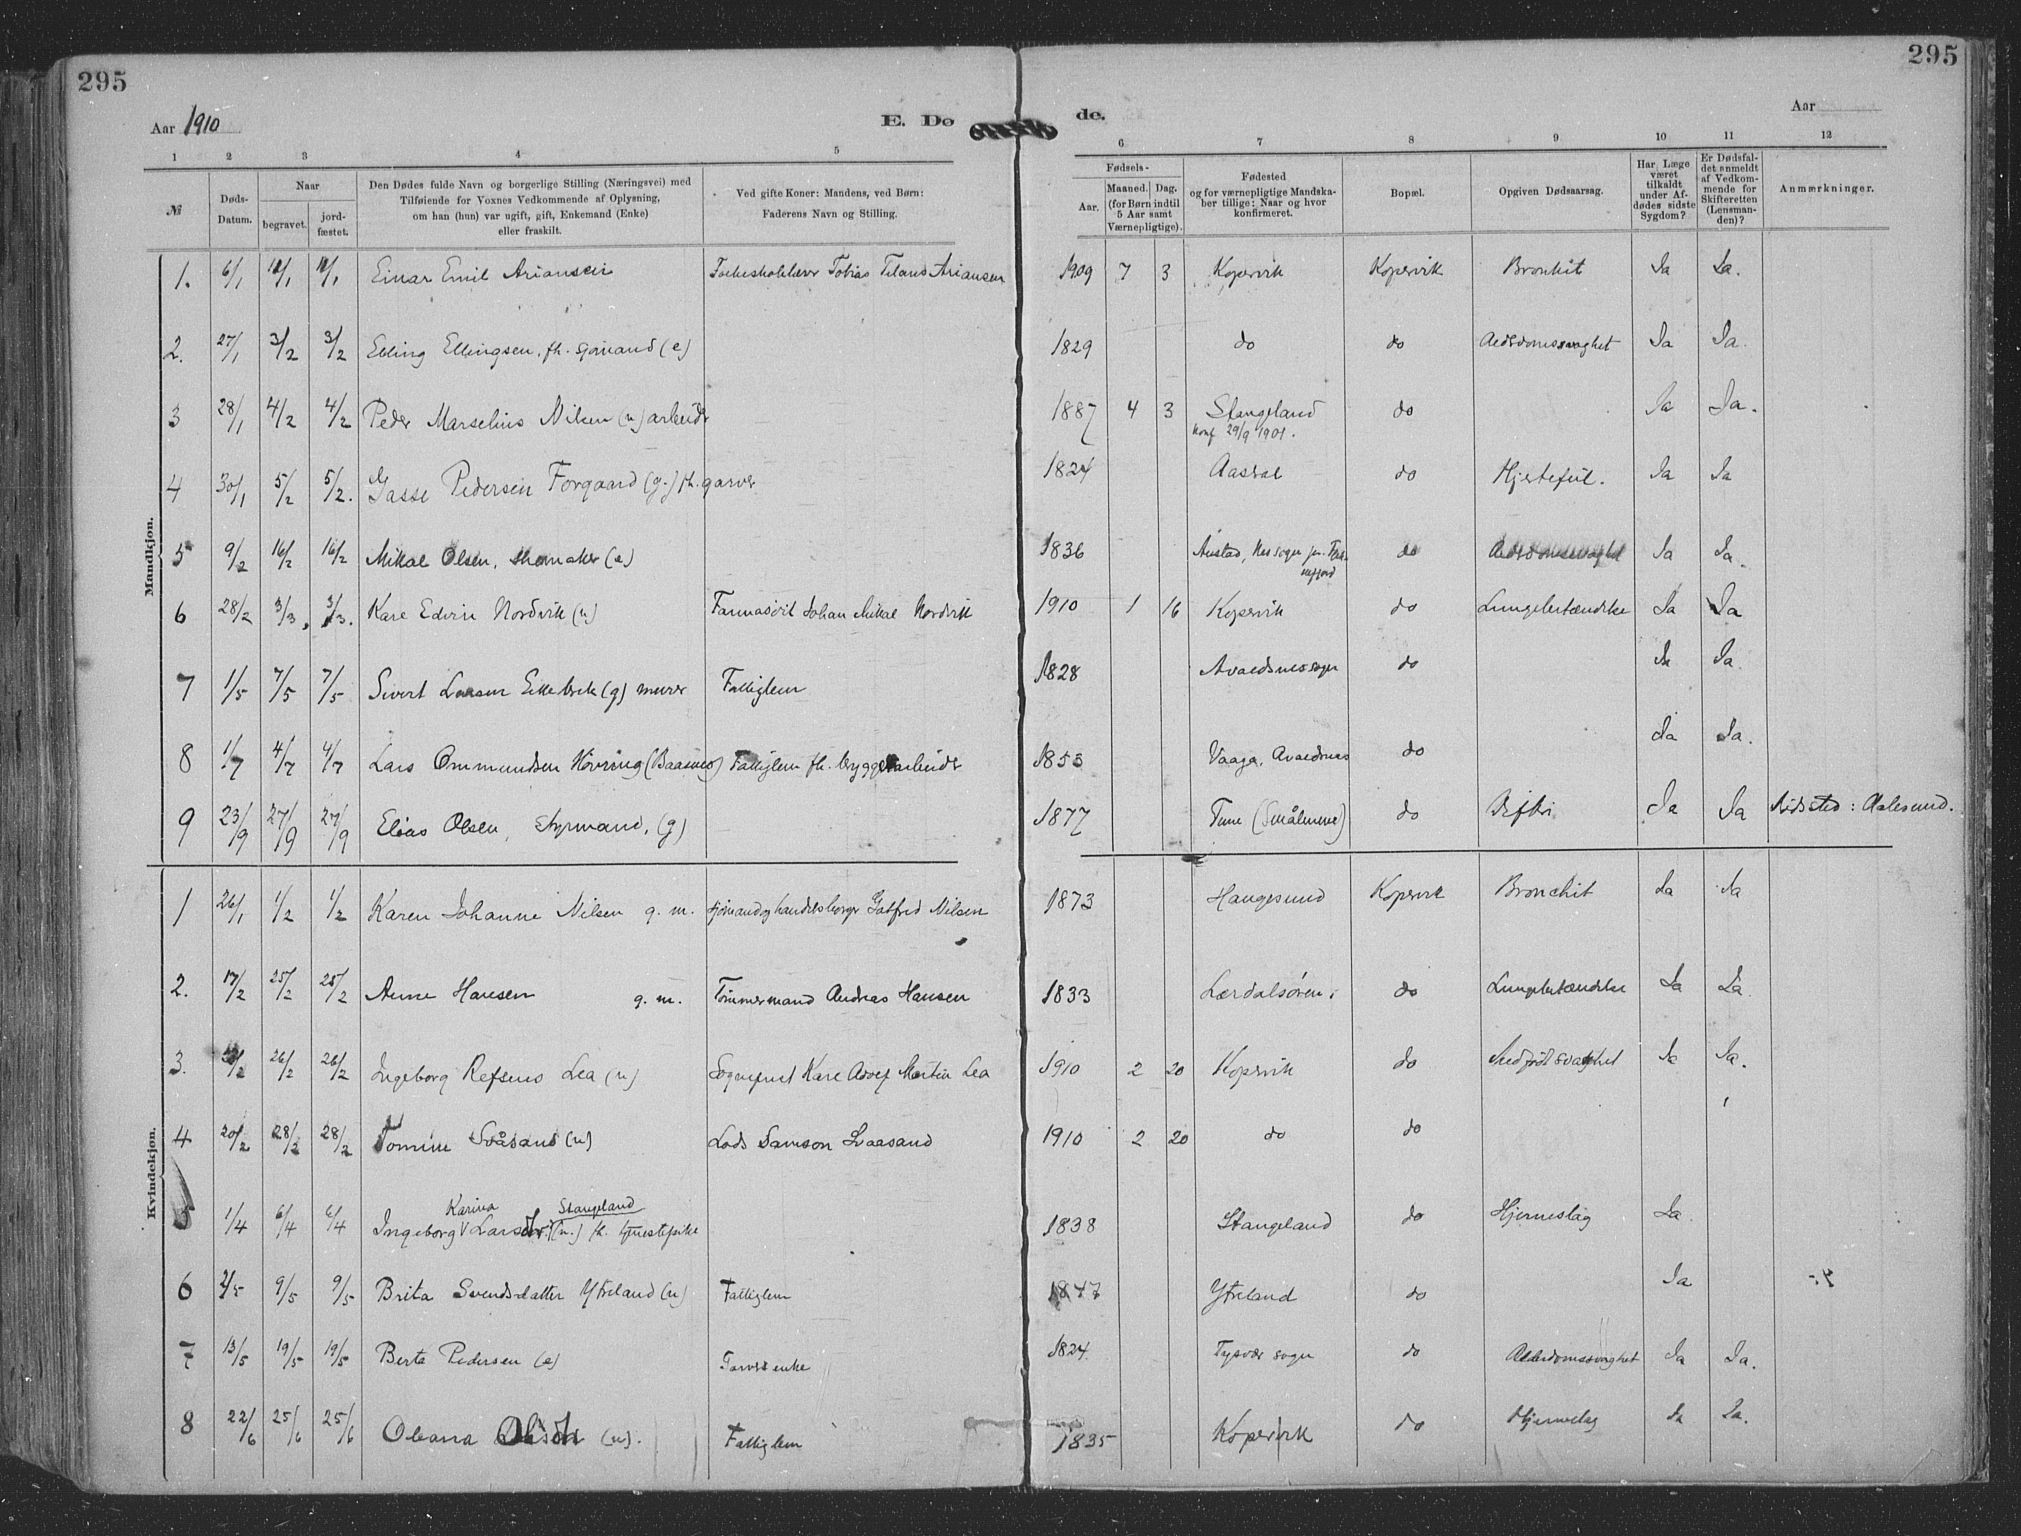 295
295
Aar 1910
E. Dø
de.
Aar
1 2 3 4 5 6 7 8 9 10 11 12
№
Døds-Datum.
Naar
begravet.
jord-fæstet.
Den Dødes fulde Navn og borgerlige Stilling (Næringsvei) med Tilføiende for Voxnes Vedkommende af Oplysning, om han (hun) var ugift, gift, Enkemand (Enke) eller fraskilt.
Ved gifte Koner: Mandens, ved Børn: Faderens Navn og Stilling.
Fødsels-
Aar.
Maaned. Dag. (for Børn indtil 5 Aar samt Værnepligtige).
Fødested og for værnepligtige Mandskaber tillige: Naar og hvor konfirmeret.
Bopæl.
Opgiven Dødsaarsag.
Har Læge været tilkaldt under Afdødes sidste Sygdom?
Er Dødsfaldet anmeldt af Vedkommende for Skifteretten (Lensmanden)?
Anmærkninger.
Mandkjøn.
1. 6/1 Einar Emil Ariansen Tobias Ariansen 1909 7 3 Kopervik Kopervik Bronkit Ja Ja.
2. 27/1 3/2 3/2 Elling Ellingsen, fh. sjømand (e) 1829 do do Alderdomssvaghet Ja Ja.
3 28/1 4/2 4/2 Peder Marselius Nilsen (u) arbeider 1887 4 3 Stangeland do Ja Ja.
Konf 29/9 1901.
4 30/1 5/2 5/2. Jasse Pedersen Forgaard (g.) fh. garver 1824 do Hjertefeil. Ja Ja
5 9/2 16/2 16/2 Mikal Olsen, skomaker (e) 1836 do Alderdomssvaghet Ja Ja.
6 28/2 3/3. 3/3. Kare Edvin Nordvik (u) Johan Mikal Nordvik 1910 1 16 Kopervik do Lungebetændelse Ja Ja
7 1/5 7/5 7/5 Sivert Larsen (g) murer Fattiglem 1828 Avaldsnes sogn do Ja Ja.
8 1/7 4/7 4/7 Lars Ommundsen Fattiglem fh. bryggearbeider 1853 Vaaga, Avaldsnes do Ja Ja.
9 23/9 27/9 27/9 Elias Olsen, Styrmand, (g) 1877 Tune (Smålenene) do Ja Ja Dødssted: Aalesund.
Kvindekjøn.
1 26/1 1/2 1/2 Karen Johanne Nilsen g. m. sjømand og handelsborger Gotfred Nilsen 1873 Haugesund Kopervik Bronchit Ja Ja
2. 17/2 25/2 25/2 Anne Hansen g. m. Tømmermand Andreas Hansen 1833 Lærdalsøren. do Lungebetændelse Ja Ja.
3. 26/2 26/2 Ingeborg Refsnes Lea (u) Sogneprest Martin Lea 1910 2 20 Kopervik do Medfødt svaghet Ja Ja.
4 20/2 28/2 28/2 Tomine Svåsand (u) Lods Samson Svaasand 1910 2 20 do do
Karina Stangeland
5 1/4 6/4 6/4 Ingeborg (u.) fh. tjenestepike 1838 Stangeland do Hjerneslag Ja.
6 2/5 9/5 9/5 Brita Svendsdatter Ytreland (u) Fattiglem 1847 Ytreland do Ja
7 13/5 19/5 19/5 Berta Pedersen (e) Garverenke 1824. Tysvær sogn do Alderdomssvaghet Ja Ja.
8 22/6 25/6 25/6 Oleana Olsen (u). Fattiglem 1835 Kopervik do Hjerneslag Ja Ja.